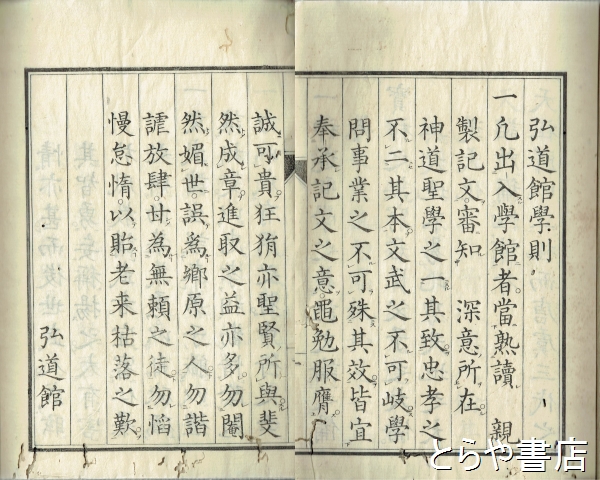 弘道館學則
一凡出入學館者當熟讀　親
製記文審知　深意所在
神道聖學之一其致忠孝之
不二其本文武之不可岐學
問事業之不可殊其效皆宜
奉承記文之意黽勉服膺
誠可貴狂狷亦聖賢所與斐
然成章進取之益亦多勿閹
然媚世誤為鄉原之人勿諧
謔放肆甘為無賴之徒勿慆
慢怠惰以貽老来枯落之歎
弘道館
とらや書店